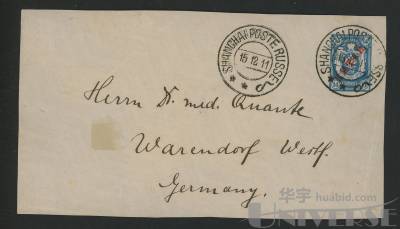 SHANGHAI POSTE RUSSE
15 12 11
SHANGHAI POSTE
Herrn Dr. med. Quante
Warendorf Westf.
Germany.
华宇 huabid.com
UNIVERSE